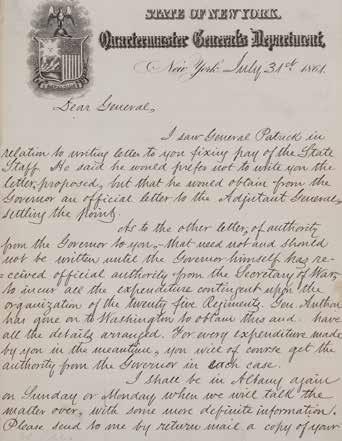 STATE OF NEW YORK.
Quartermaster General's Department,
New York July 31st 1861.
Dear General,
I saw General Patrick in
relation to writing letter to you fixing pay of the State
Staff. He said he would prefer not to write you the
letter, proposed, but that he would obtain from the
Governor an official letter to the Adjutant General,
settling the point.
As to the other letter, of authority
from the Governor to you, that need not and should
not be written until the Governor himself has re-
ceived official authority from the Secretary of War,
to incur all the expenditure contingent upon the
organization of the twenty five Regiments. Gen Arthur
has gone on to Washington to obtain this and have
all the details arranged. For every expenditure made
by you in the meantime, you will of course get the
authority from the Governor in each case.
I shall be in Albany again
on Sunday or Monday when we will talk the
matter over, with some more definite information.
Please send to me by return mail a copy of your